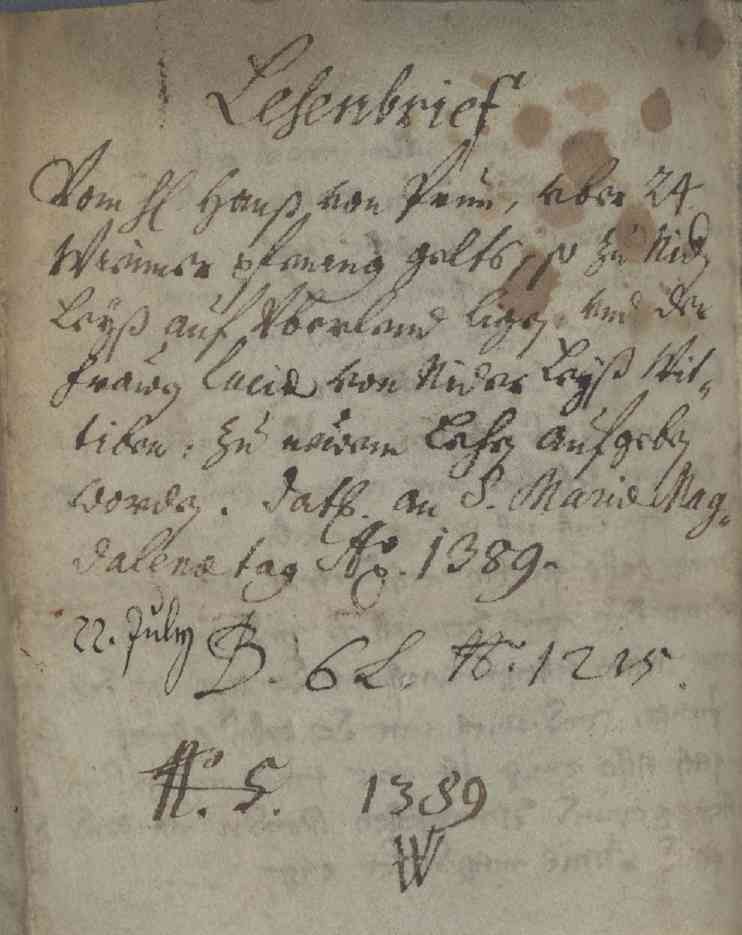 Lehenbrief
Vom H. Hanß von Prun, vber 24
Wienner pfening gelts, so zu Nid.
Leyß auf Vberlend ligen, und der
frawen Lucia von Nider Leyß Wit-
tiben, zu einem Lehen aufgeben
worden. dato. an S. Maria Mag-
dalena tag Ao. 1389.
22. July B. 6 L. N. 1215.
N. 5. 1389
W